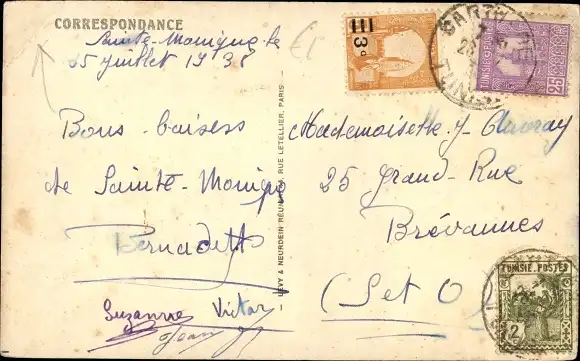 CORRESPONDANCE
Sainte-Monique le
25 juillet 1938
Bons-baisers
de Sainte-Monique
Bernadette
Suzanne Victor
Jean
LEVY & NEURDEIN RÉUNIS, RUE LETELLIER, PARIS
3c
CARTHAGE
TUNISIE
25
Mademoiselle J.
25 Grand-Rue
Brévannes
(Set O
TUNISIE. POSTES
2